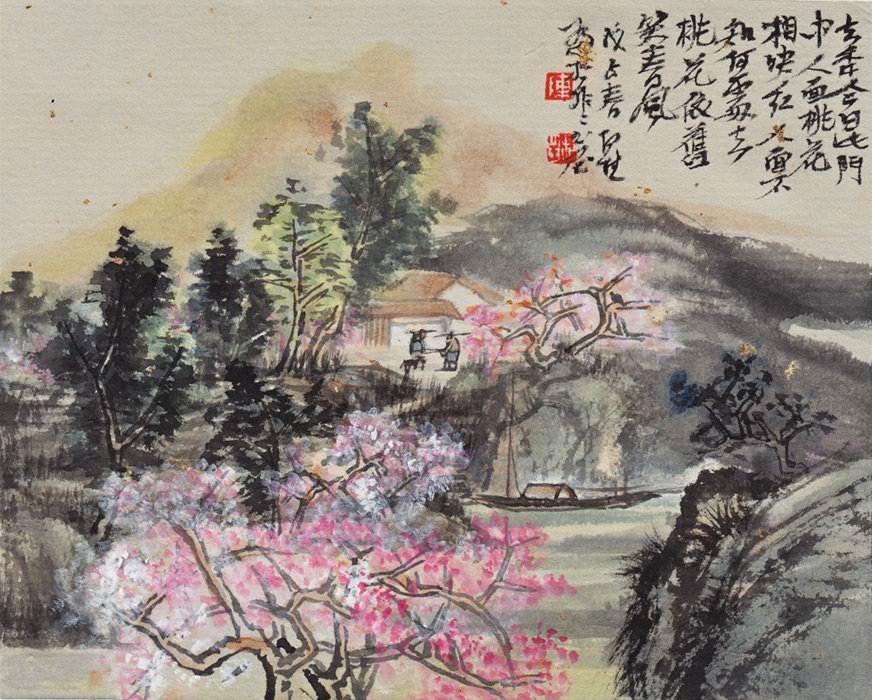 去年今日此門
中人面桃花
相映紅人面不
知何處去
桃花依舊
笑春風
戊 春